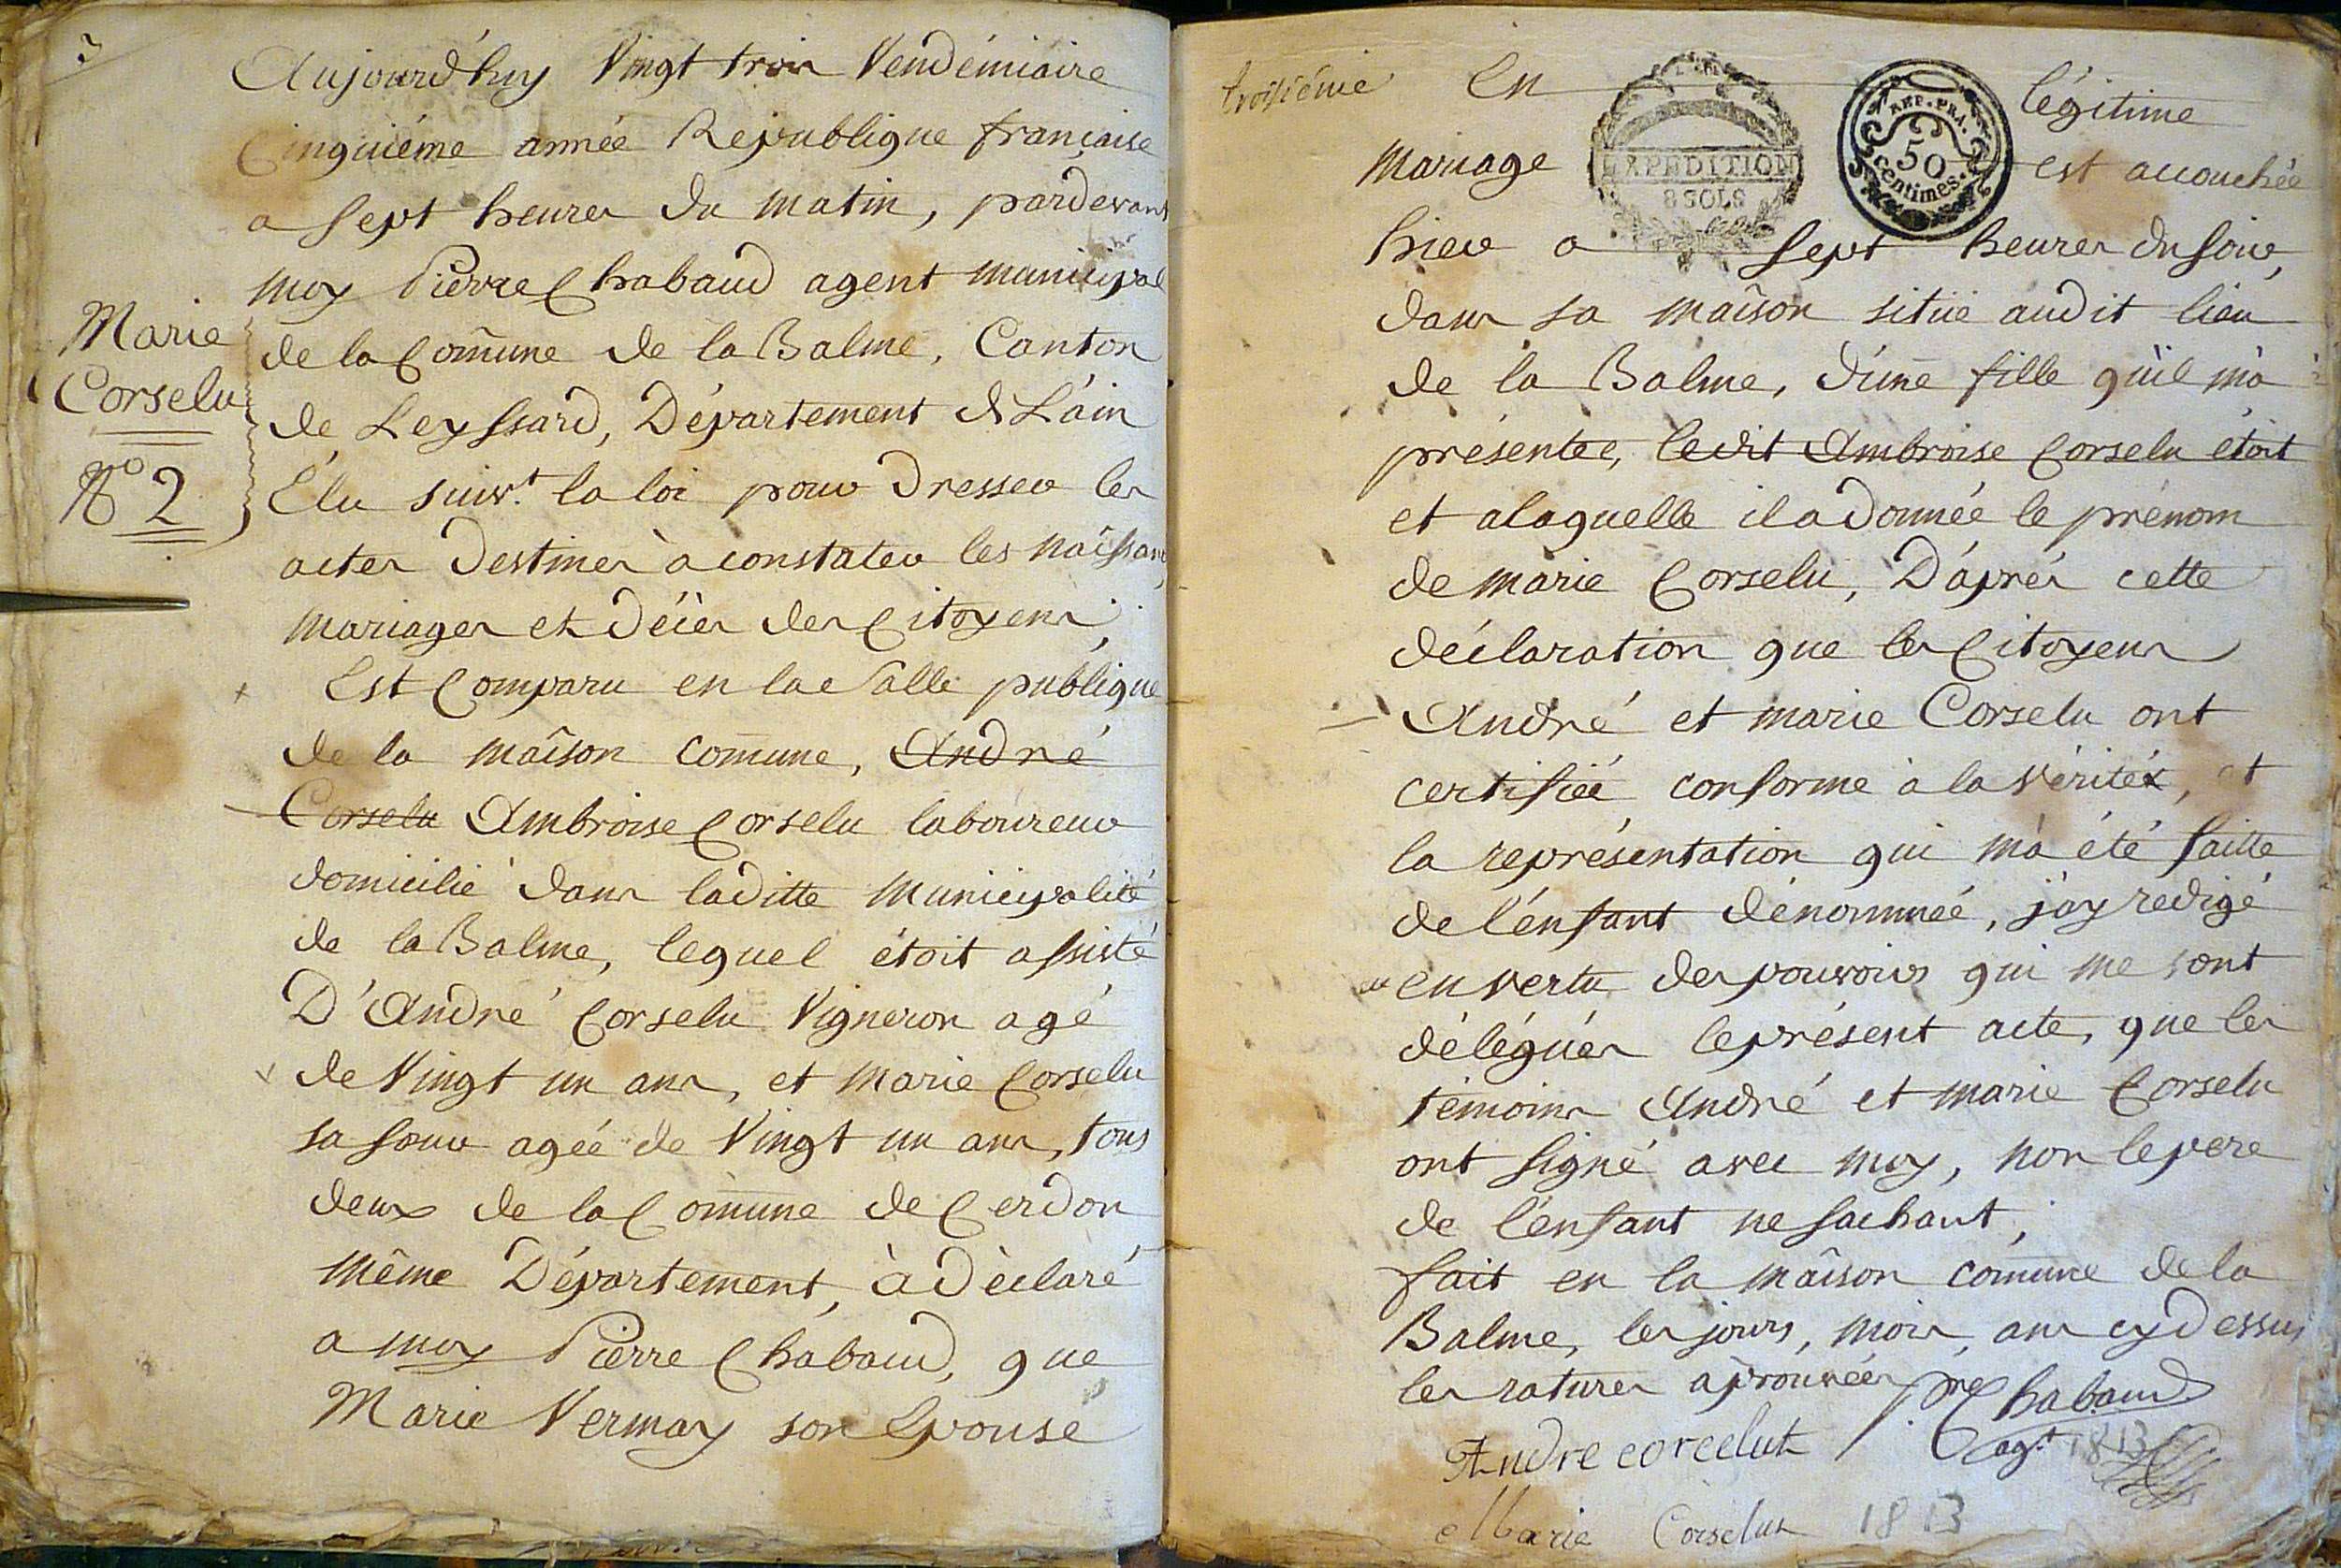 3
Aujourd'huy Vingt trois Vendémiaire
Cinquiéme année Republique française
a sept heures du matin, pardevant
moy Pierre Chabaud agent municipal
de la Com̃une de la Balme, Canton
de Leyssard, Département de L'ain
Élu suivt. la loi pour dresser les
actes destinés à constater les naissan
mariages et décès des Citoyens,
Est Comparu en la Salle publique
de la maîson com̃une, André
Corselu Ambroise Corselu laboureur
domicilié dans laditte municipalité
de la Balme, lequel étoit assisté
D'André Corselu Vigneron agé
de Vingt un ans, et marie Corselu
sa soeur agéé de Vingt un ans, tous
deux de la Com̃une de Cerdon
même Département, à dèclaré
a moy Pierre Chabaud, que
Marie Vermay son Epouse
Marie
Corselu
No 2
troisiéme
En légitime
mariage est accouchée
hier a sept heures du soir,
dans sa maîson sitüé audit lieu
de la Balme, d'une fille qu'il m'a
présentee, ledit Ambroise Corselu étoit
et alaquelle il a donnée le prénom
de marie Corselu, D'après cette
déclaration que les Citoyens
André et marie Corselu ont
certifiéé conforme à la vérité, et
la représentation qui m'a été faitte
de l'enfant dénomméé, j'ay redigé
en vertu des pouvoirs qui me sont
délégués le présent acte, que les
témoins André et marie Corselu
ont signé avec moy, non le pere
de l'enfant ne sachant,
fait en la maîson com̃une de la
Balme, les jours, mois, ans cy dessus
les ratures aprouvées pre Chabaud
Andre corcelut agt. 1813
Marie Corselut 1813
EXPEDITION
8 SOLS
REP. FRA.
50
centimes.